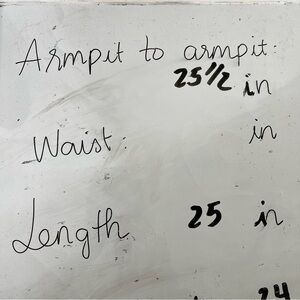 Armpit to armpit:
25 1/2 in
Waist: in
Length 25 in
24